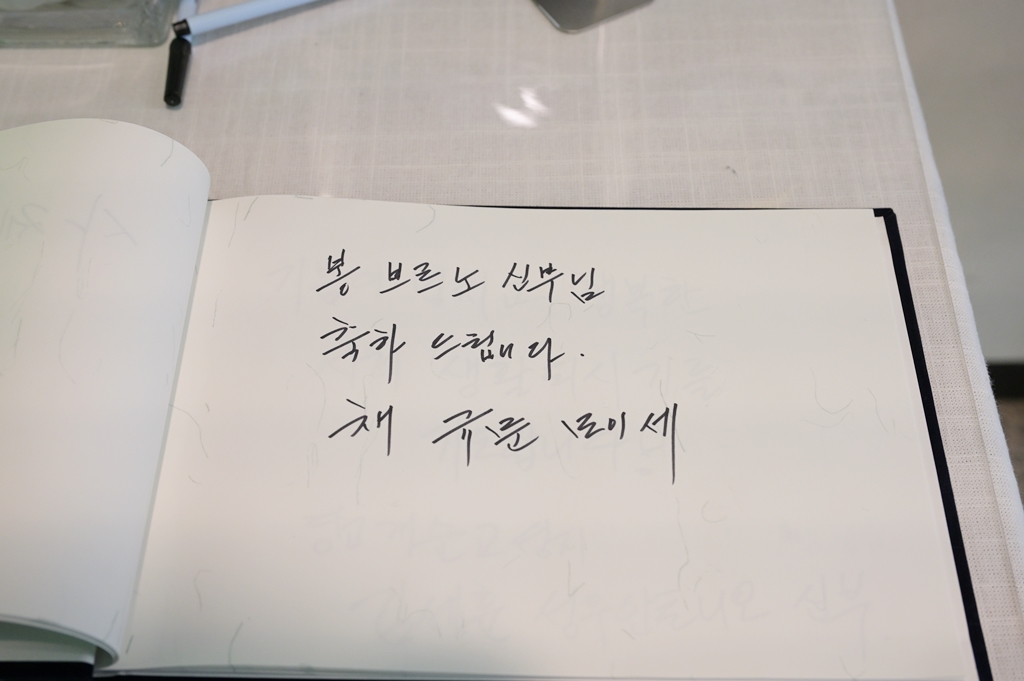 봉 브르노 신부님
축하 드립니다.
채 규문 모이세